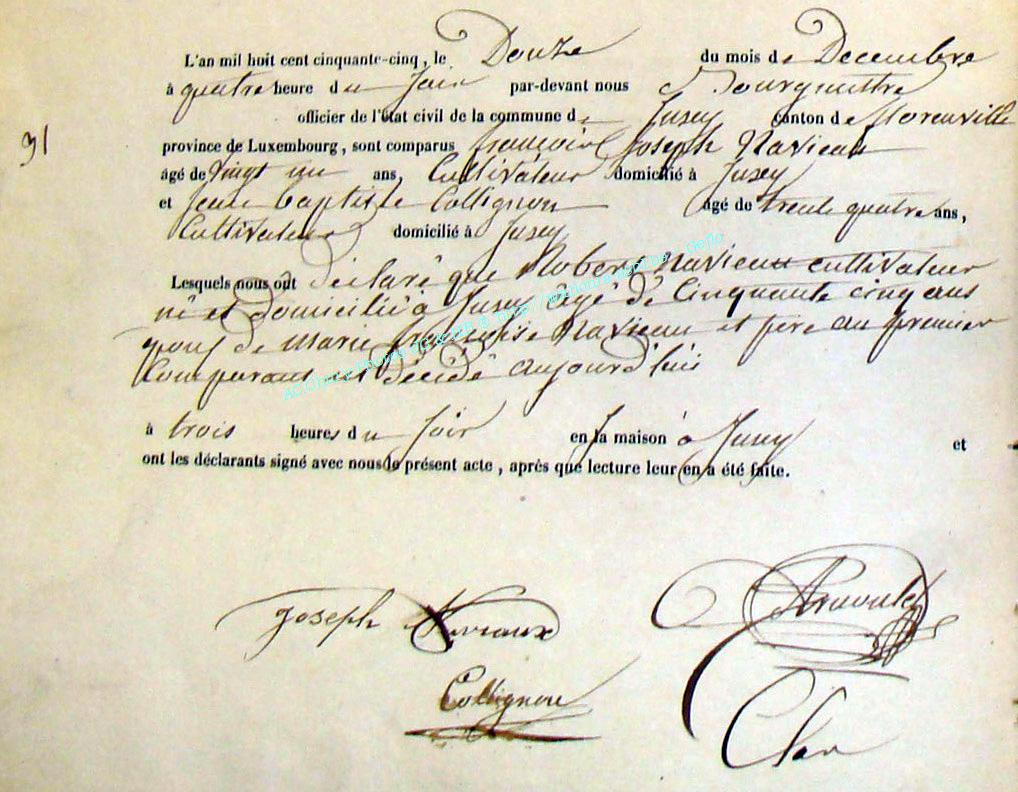 L'an mil huit cent cinquante-cinq, le Douze du mois de Decembre
à quatre heure du soir par-devant nous Bourgmestre
officier de l'état civil de la commune de Jusey canton de Moreuville
91
province de Luxembourg, sont comparus françois Joseph Navieau
âgé de vingt un ans, Cultivateur domicilié à Jusey
et Jean baptiste Collignon âgé de trente quatre ans,
Cultivateur domicilié à Jusey
Lesquels nous ont déclaré que Robert Navieau cultivateur
né et domicilié à Jusey âgé de Cinquante cinq ans
de Marie Navieau et père au premier
Comparant est décédé aujourd'hui
à trois heures du soir en sa maison à Jusey et
ont les déclarants signé avec nous le présent acte, après que lecture leur en a été faite.
Joseph
Collignon